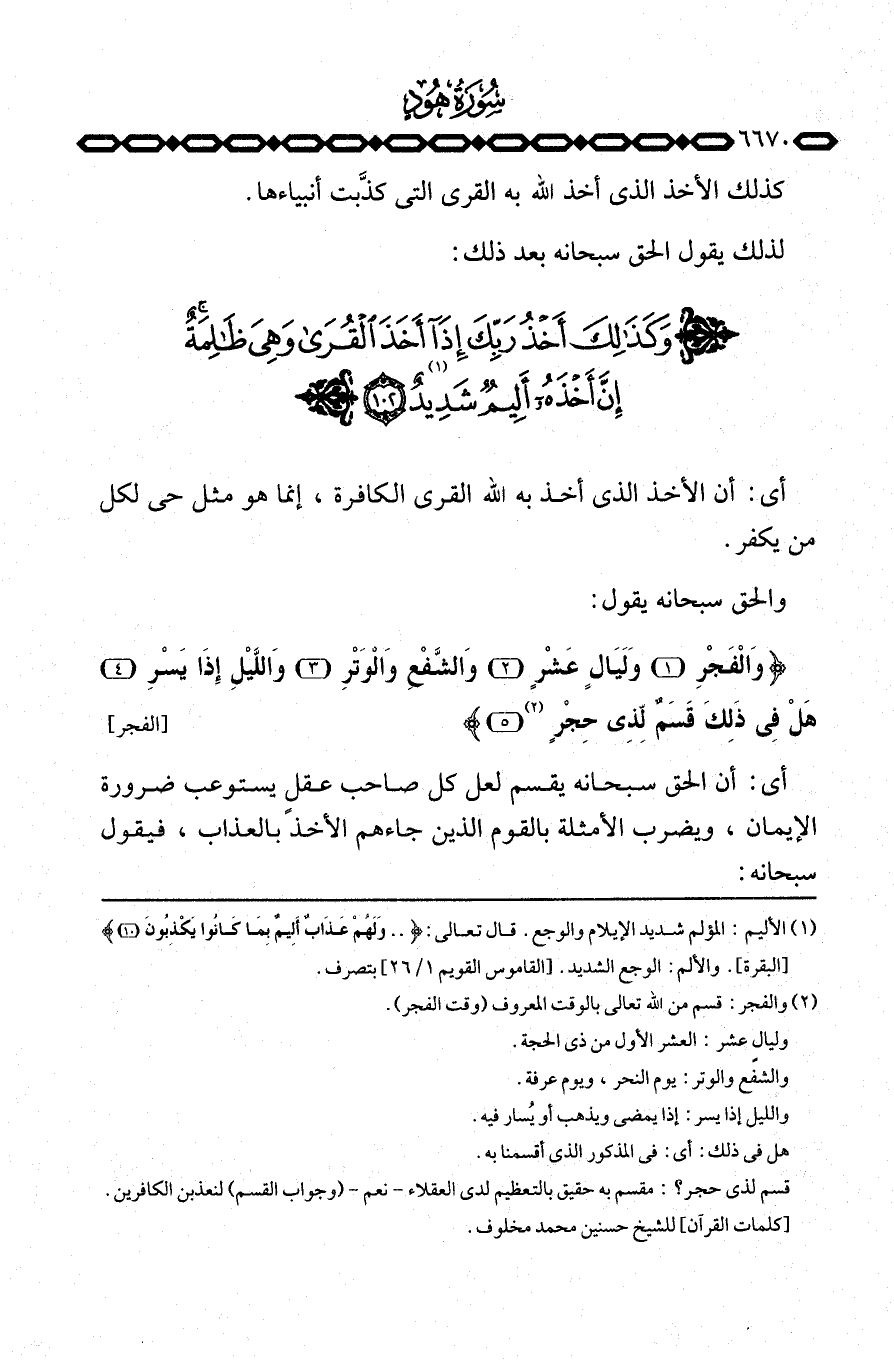 سُورَةُ هُودٍ
٦٦٧٠
كذلك الأخذ الذى أخذ الله به القرى التى كذَّبت أنبياءها .
لذلك يقول الحق سبحانه بعد ذلك :
وَكَذَٰلِكَ أَخْذُ رَبِّكَ إِذَآ أَخَذَ ٱلْقُرَىٰ وَهِىَ ظَٰلِمَةٌ ۚ
إِنَّ أَخْذَهُۥٓ أَلِيمٌ (١) شَدِيدٌ ١٠٢
أى : أن الأخذ الذى أخـذ به الله القرى الكافرة ، إنما هو مثـل حى لكل
من يكفر .
والحق سبحانه يقول :
﴿ وَالْفَجْرِ (١) وَلَيَالٍ عَشْرٍ (٢) وَالشَّفْعِ وَالْوَتْرِ (٣) وَاللَّيْلِ إِذَا يَسْرِ (٤)
هَلْ فِى ذَلِكَ قَسَمٌ لِّذِى حِجْرٍ (٢) (٥) ﴾ [الفجر]
أى : أن الحق سـبحـانه يقـسم لعل كل صـاحب عـقل يسـتوعب ضـرورة
الإيمـان ، ويضـرب الأمثـلة بالقوم الذين جاءهم الأخذ بـالعـذاب ، فـيقـول
سبحانه :
(١) الأليم : المؤلم شـديد الإيلام والوجع . قـال تعـالى : ﴿ .. وَلَهُمْ عَذَابٌ أَلِيمٌ بِمَا كَانُوا يَكْذِبُونَ (١٠) ﴾
[البقرة] . والألم : الوجع الشديد . [القاموس القويم ١/ ٢٦] بتصرف .
(٢) والفجر : قسم من الله تعالى بالوقت المعروف (وقت الفجر) .
وليال عشر : العشر الأول من ذى الحجة .
والشفع والوتر : يوم النحر ، ويوم عرفة .
والليل إذا يسر : إذا يمضى ويذهب أو يُسار فيه .
هل فى ذلك : أى : فى المذكور الذى أقسمنا به .
قسم لذى حجر ؟ : مقسم به حقيق بالتعظيم لدى العقلاء - نعم - (وجواب القسم) لنعذبن الكافرين .
[كلمات القرآن] للشيخ حسنين محمد مخلوف .